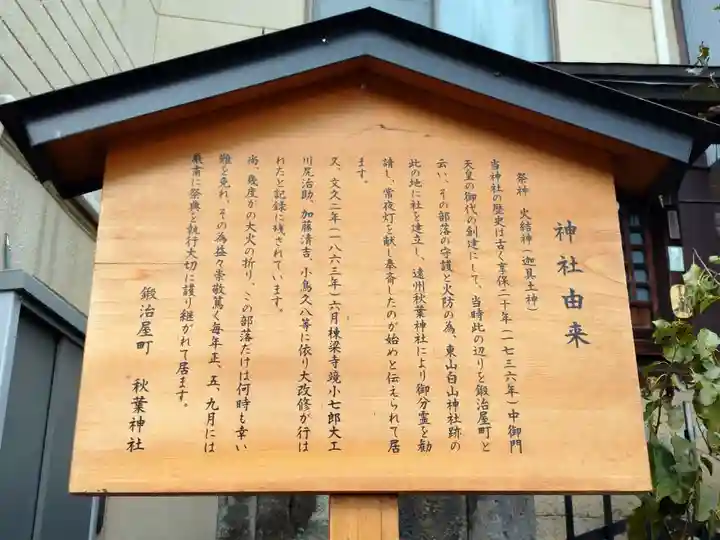 神社由来
祭神 火結神(迦具土神)
当神社の歴史は古く享保二十年(一七三六年)中御門
天皇の御代の創建にして、当時此の辺りを鍛治屋町と
云い、その部落の守護と火防の為、東山白山神社跡の
此の地に社を建立し、遠州秋葉神社により御分霊を勧
請し、常夜灯を献し奉斎したのが始めと伝えられて居
ます。
又、文久二年(一八六三年)六月棟梁寺境小七郎大工
川尻治助、加藤清吉、小鳥久八等に依り大改修が行は
れたと記録に残されています。
尚、幾度かの大火の折り、この部落だけは何時も幸い
難を免れ、その為益々崇敬篤く毎年正、五、九月には
厳粛に祭典を執行大切に護り継がれて居ます。
鍛治屋町 秋葉神社